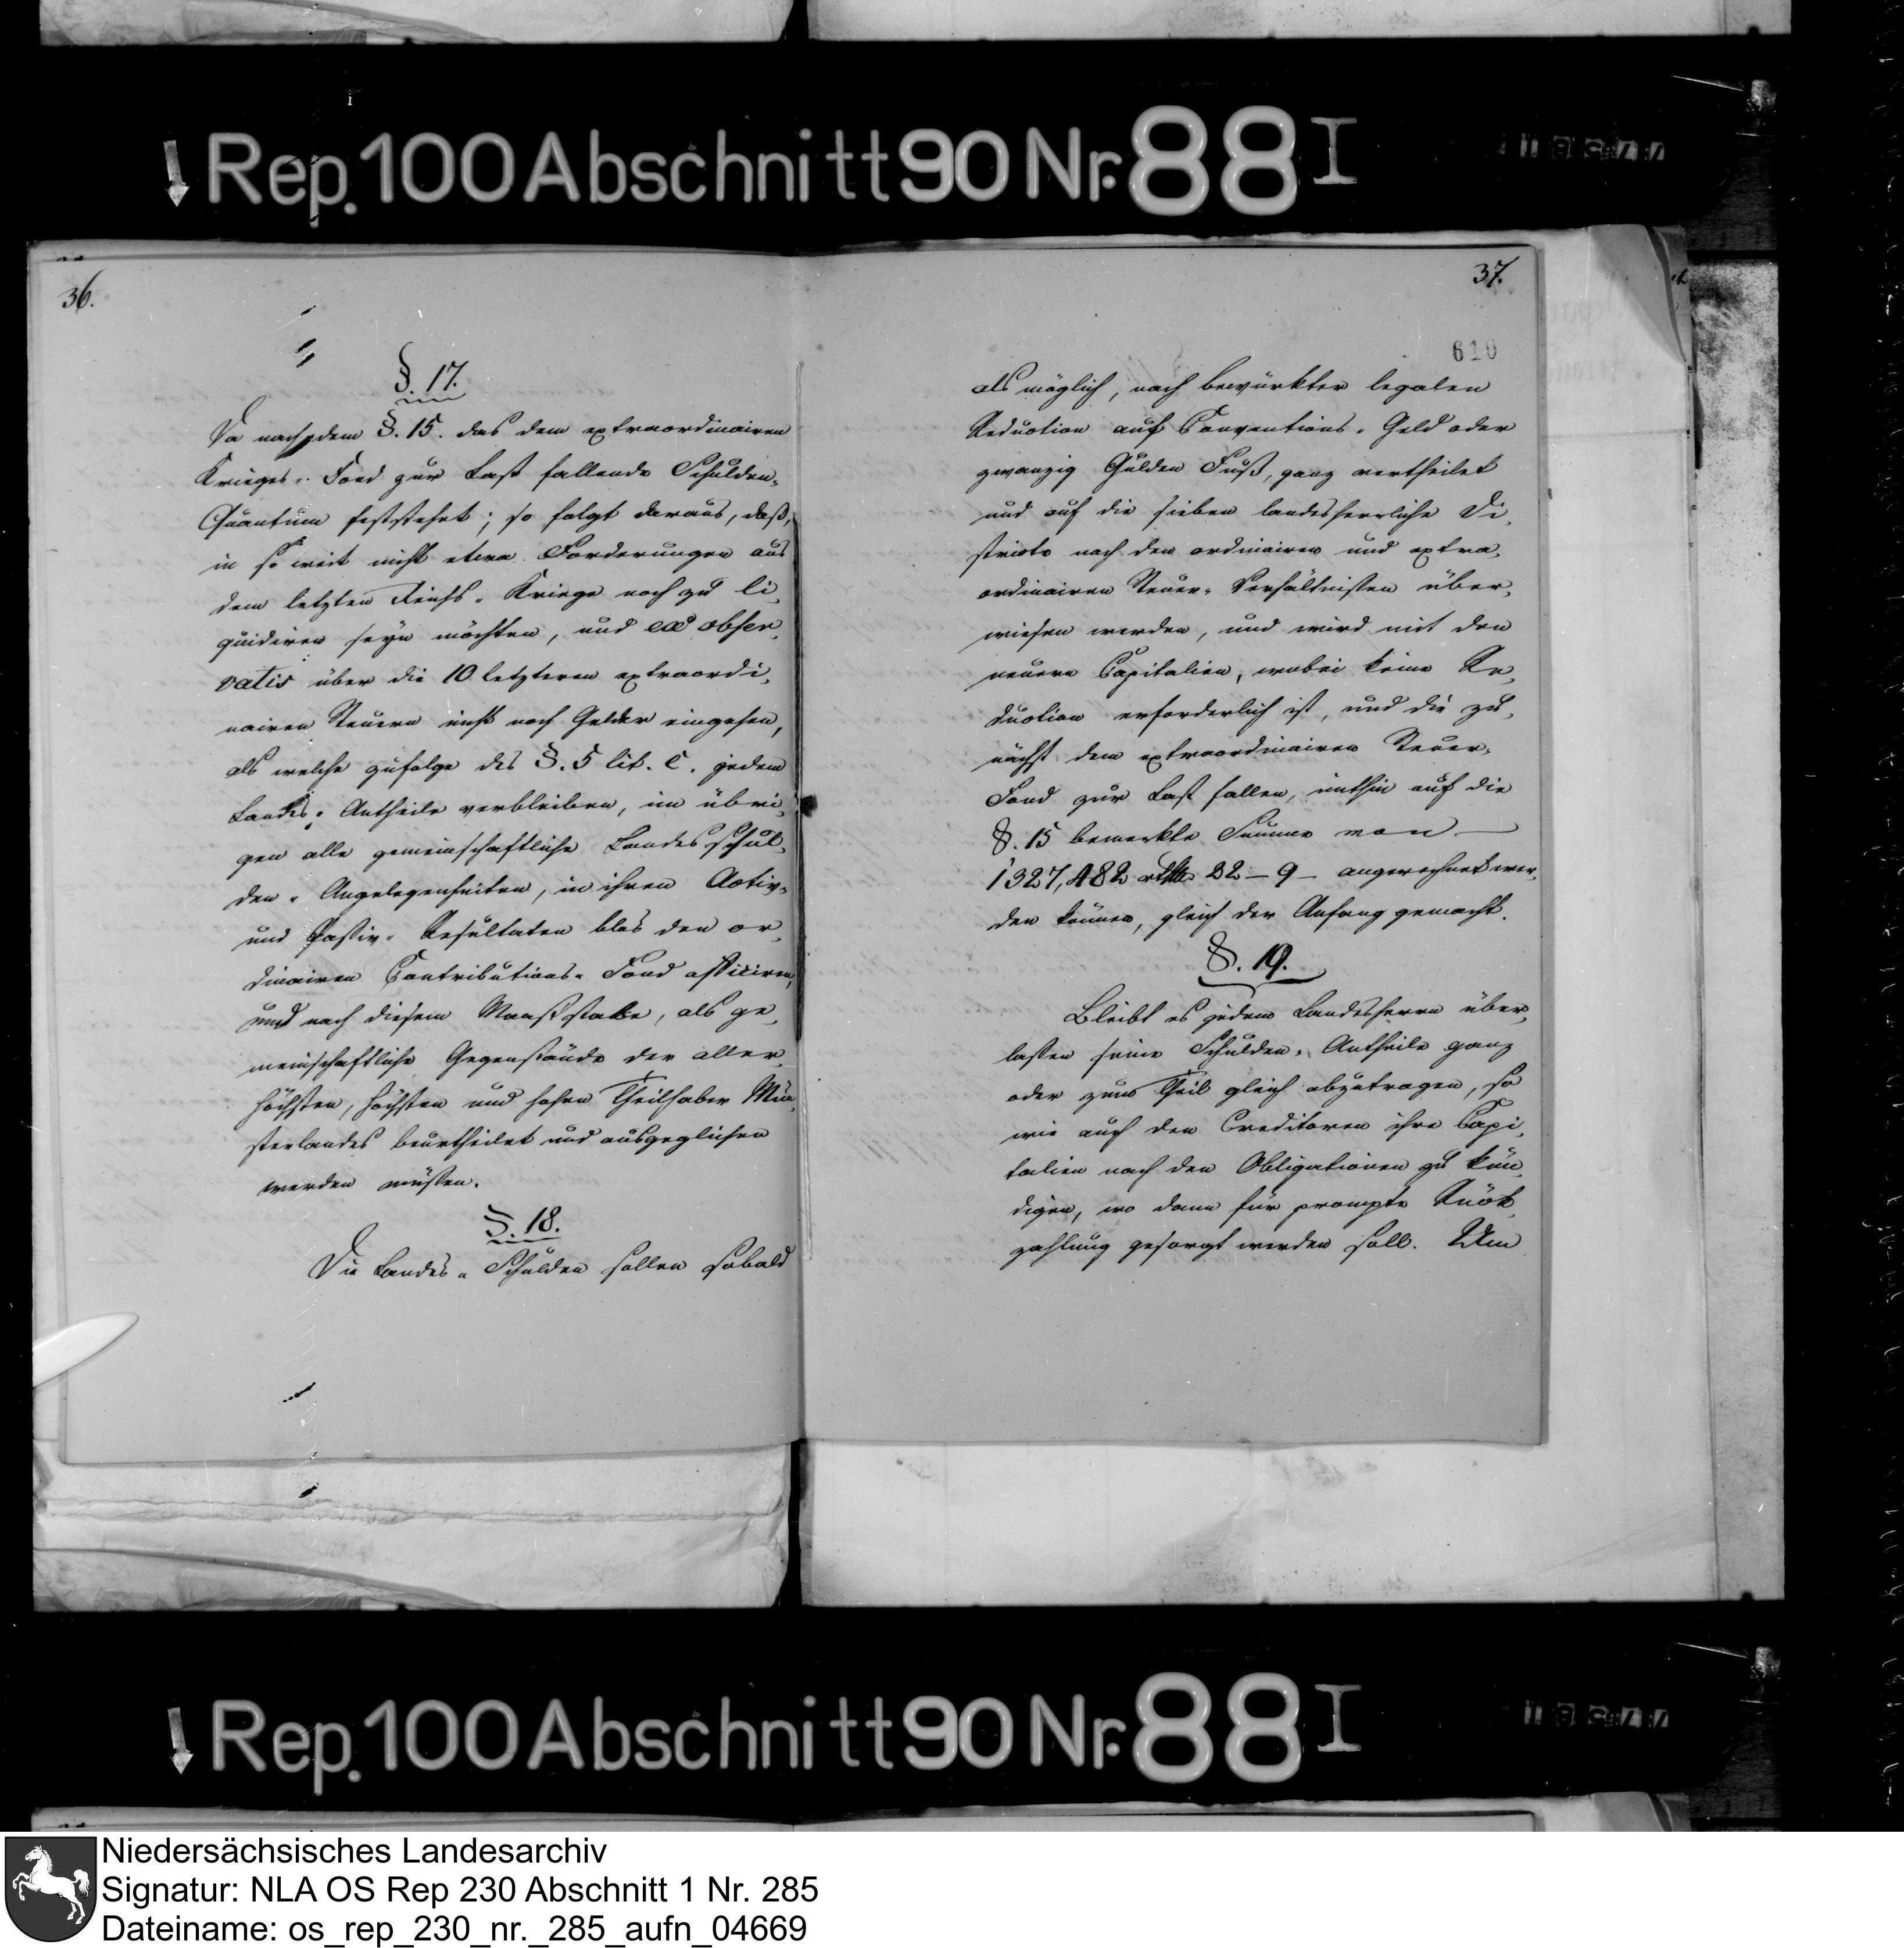 Rep. 100 Abschnitt 90 Nr. 88 I
36.
§. 17.
Da nach dem §. 15. das dem extraordinairen
Krieges-Fond zur Last fallende Schulden-
Quantum feststehet; so folgt daraus, daß,
in so weit nicht etwa Forderungen aus
dem letzten Reichs-Kriege noch zu li-
quidiren seyn möchten, und ex obser-
vatis über die 10 letzteren extraordi-
nairen Steuern nicht noch Gelder eingehen,
als welche zufolge des §. 5 lit. C. jedem
Landes-Antheile verbleiben, im übri-
gen alle gemeinschaftliche Landesschul-
den-Angelegenheiten, in ihren Activ-
und Passiv-Resultaten blos den or-
dinairen Contributions-Fond afficiren,
und nach diesem Maaßstabe, als ge-
meinschaftliche Gegenstände der aller-
höchsten, höchsten und hohen Theilhaber Mün-
sterlandes beurtheilet und ausgeglichen
werden müssen.
§. 18.
Die Landes-Schulden sollen sobald
37.
610
als möglich, nach bewürkter legalen
Reduction auf Conventions-Geld oder
zwanzig Gulden Fuß, ganz vertheilet
und auf die sieben landesherrliche Di-
stricte nach den ordinairen und extra-
ordinairen Steuer-Verhältnissen über-
wiesen werden, und wird mit den
neuern Capitalien, wobei keine Re-
duction erforderlich ist, und die zu-
nächst dem extraordinairen Steuer-
Fond zur Last fallen, mithin auf die
§. 15 bemerkte Summe von
1327,482 rthlr 22 - 9 - angerechnet wer-
den können, gleich der Anfang gemacht.
§. 19.
Bleibt es jedem Landesherrn über-
lassen seine Schulden-Antheile ganz
oder zum Theil gleich abzutragen, so
wie auch den Creditoren ihre Capi-
talien nach den Obligationen zu kün-
digen, wo dann für prompte Rück-
zahlung gesorgt werden soll. Um
Rep. 100 Abschnitt 90 Nr. 88 I
Niedersächsisches Landesarchiv
Signatur: NLA OS Rep 230 Abschnitt 1 Nr. 285
Dateiname: os_rep_230_nr._285_aufn_04669